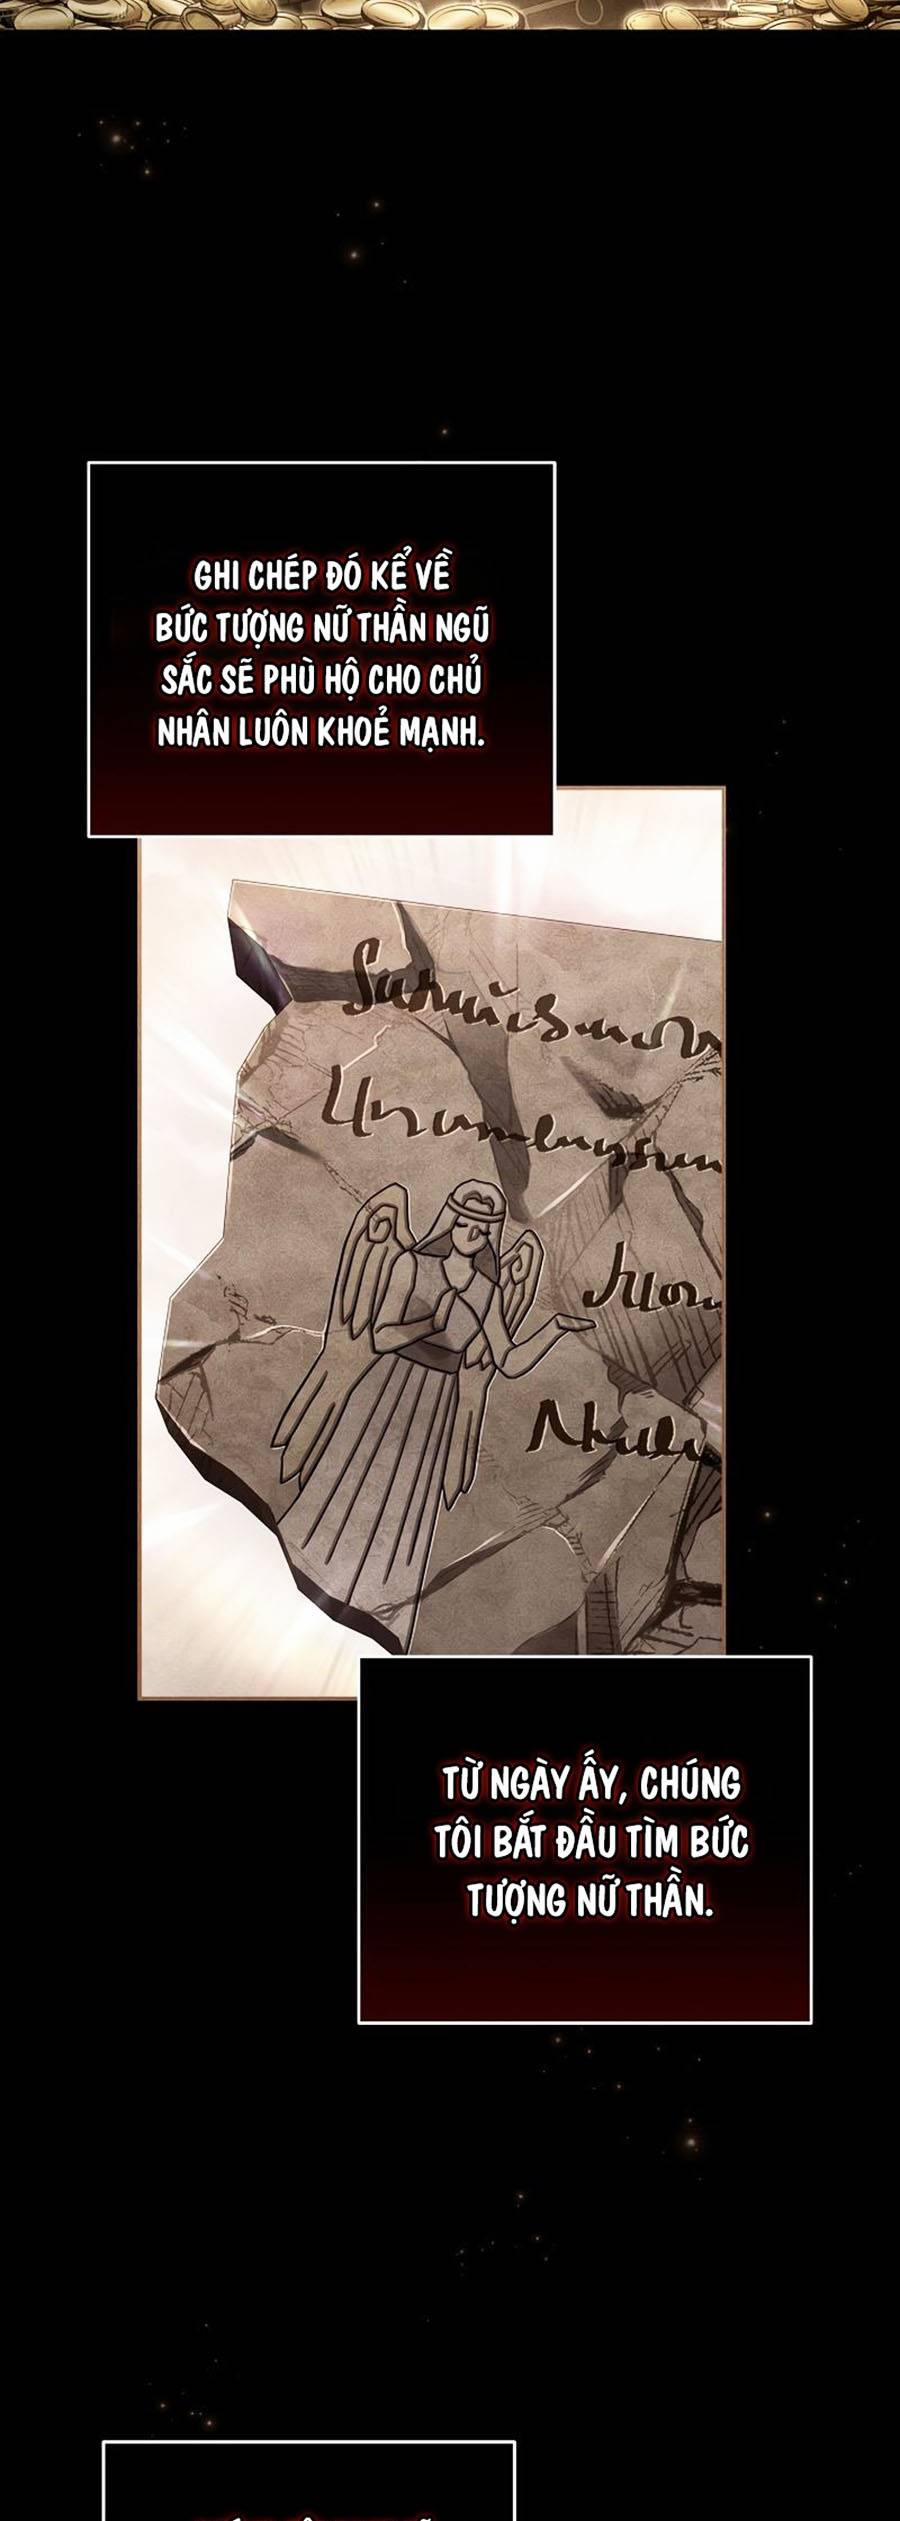 GHI CHÉP ĐÓ KỂ VỀ
BỨC TƯỢNG NỮ THẦN NGŨ
SẮC SẼ PHÙ HỘ CHO CHỦ
NHÂN LUÔN KHOẺ MẠNH.
TỪ NGÀY ẤY, CHÚNG
TÔI BẮT ĐẦU TÌM BỨC
TƯỢNG NỮ THẦN.